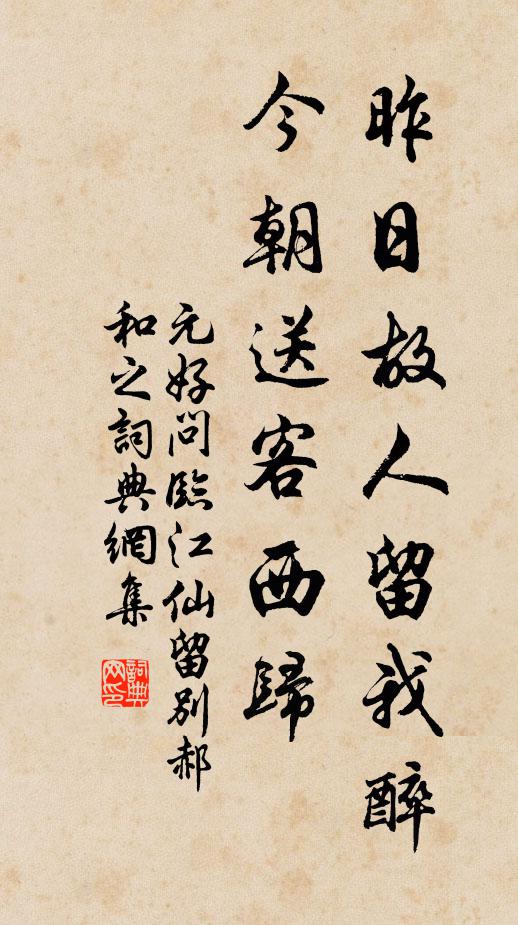 昨日故人留我醉
今朝送客西歸
元好問臨江仙留別郝
和之詞典網集
詞典
网印